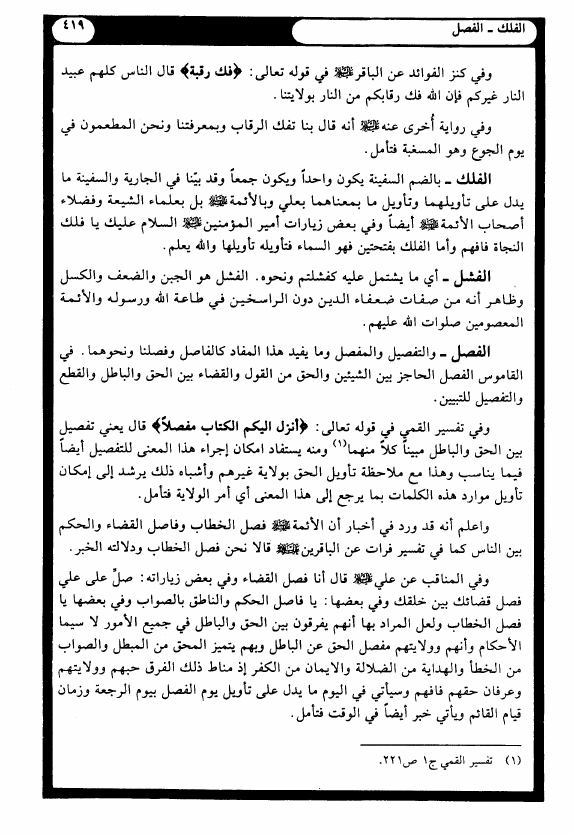 الفلك ـ الفصل
٤١٩
وفي كنز الفوائد عن الباقر﵇ في قوله تعالى: ﴿فك رقبة﴾ قال الناس كلهم عبيد
النار غيركم فإن الله فك رقابكم من النار بولايتنا.
وفي رواية أُخرى عنه﵇ أنه قال بنا تفك الرقاب وبمعرفتنا ونحن المطعمون في
يوم الجوع وهو المسغبة فتأمل.
الفلك ـ بالضم السفينة يكون واحداً ويكون جمعاً وقد بيّنا في الجارية والسفينة ما
يدل على تأويلهما وتأويل ما بمعناهما بعلي وبالأئمة﵈ بل بعلماء الشيعة وفضلاء
أصحاب الأئمة﵈ أيضاً وفي بعض زيارات أمير المؤمنين﵇ السلام عليك يا فلك
النجاة فافهم وأما الفلك بفتحتين فهو السماء فتأويله تأويلها والله يعلم.
الفشل ـ أي ما يشتمل عليه كفشلتم ونحوه. الفشل هو الجبن والضعف والكسل
وظاهر أنه من صفات ضعفاء الدين دون الراسخين في طاعة الله ورسوله والأئمة
المعصومين صلوات الله عليهم.
الفصل ـ والتفصيل والمفصل وما يفيد هذا المفاد كالفاصل وفصلنا ونحوهما. في
القاموس الفصل الحاجز بين الشيئين والحق من القول والقضاء بين الحق والباطل والقطع
والتفصيل للتبيين.
وفي تفسير القمي في قوله تعالى: ﴿أنزل اليكم الكتاب مفصلاً﴾ قال يعني تفصيل
بين الحق والباطل مبيناً كلاً منهما(١) ومنه يستفاد امكان إجراء هذا المعنى للتفصيل أيضاً
فيما يناسب وهذا مع ملاحظة تأويل الحق بولاية غيرهم وأشباه ذلك يرشد إلى إمكان
تأويل موارد هذه الكلمات بما يرجع إلى هذا المعنى أي أمر الولاية فتأمل.
واعلم أنه قد ورد في أخبار أن الأئمة﵈ فصل الخطاب وفاصل القضاء والحكم
بين الناس كما في تفسير فرات عن الباقرين﵉ قالا نحن فصل الخطاب ودلالته الخبر.
وفي المناقب عن علي﵇ قال أنا فصل القضاء وفي بعض زياراته: صلِّ على علي
فصل قضائك بين خلقك وفي بعضها: يا فاصل الحكم والناطق بالصواب وفي بعضها يا
فصل الخطاب ولعل المراد بها أنهم يفرقون بين الحق والباطل في جميع الأمور لا سيما
الأحكام وأنهم وولايتهم مفصل الحق عن الباطل وبهم يتميز المحق من المبطل والصواب
من الخطأ والهداية من الضلالة والايمان من الكفر إذ مناط ذلك الفرق حبهم وولايتهم
وعرفان حقهم فافهم وسيأتي في اليوم ما يدل على تأويل يوم الفصل بيوم الرجعة وزمان
قيام القائم ويأتي خبر أيضاً في الوقت فتأمل.
(١) تفسير القمي ج١ ص٢٢١.